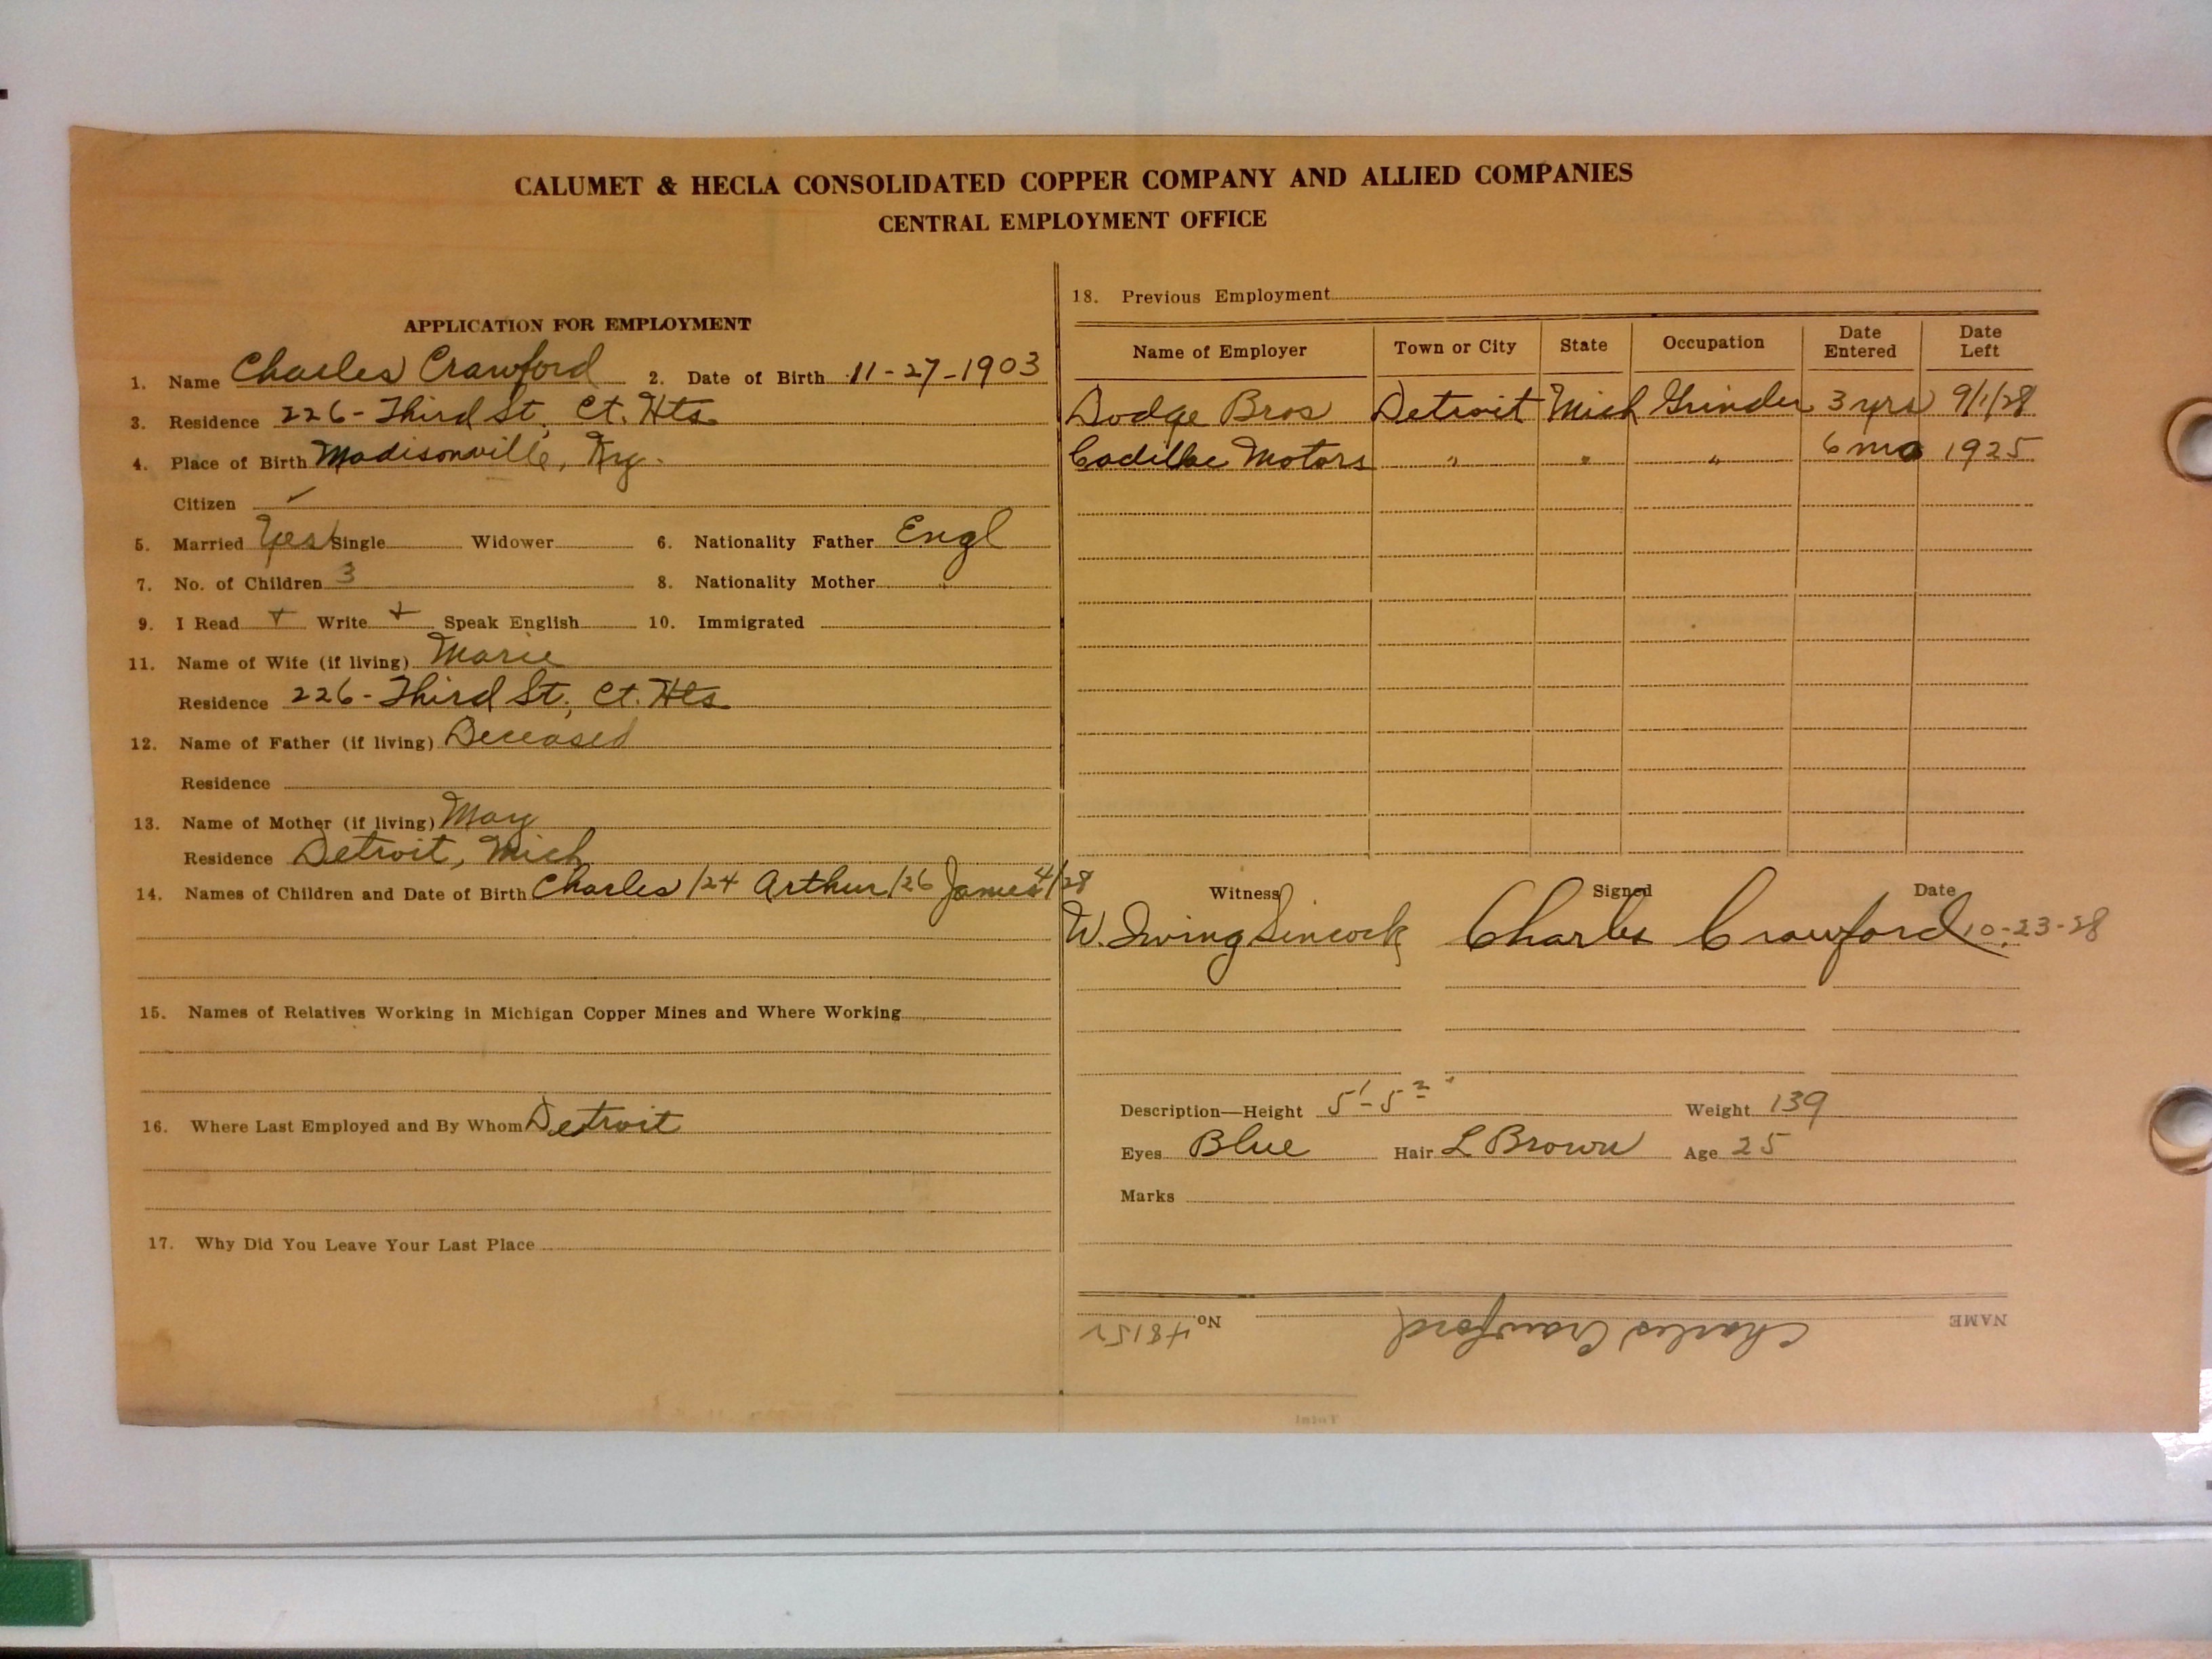 CALUMET & HECLA CONSOLIDATED COPPER COMPANY AND ALLIED COMPANIES
CENTRAL EMPLOYMENT OFFICE
APPLICATION FOR EMPLOYMENT
1. Name Charles Crawford 2. Date of Birth 11-27-1903
3. Residence 226-Third St, Ct. Hts
4. Place of Birth Madisonville, Ky.
Citizen ✓
5. Married Yes Single Widower 6. Nationality Father Engl
7. No. of Children 3 8. Nationality Mother "
9. I Read + Write + Speak English 10. Immigrated
11. Name of Wife (if living) Marie
Residence 226-Third St., Ct. Hts
12. Name of Father (if living) Deceased
Residence
13. Name of Mother (if living) Mary
Residence Detroit, Mich
14. Names of Children and Date of Birth Charles /24 Arthur /26 James 4/28
15. Names of Relatives Working in Michigan Copper Mines and Where Working
16. Where Last Employed and By Whom Detroit
17. Why Did You Leave Your Last Place
18. Previous Employment
Name of Employer Town or City State Occupation Date Entered Date Left
Dodge Bros Detroit Mich Grinder 3 yrs 9/1/28
Cadillac Motors " " " 6 mo 1925
Witness Signed Date
W. Irving Sincock Charles Crawford 10-23-28
Description—Height 5'-5 2/" Weight 139
Eyes Blue Hair L Brown Age 25
Marks
NAME Charles Crawford No. 48152
Total